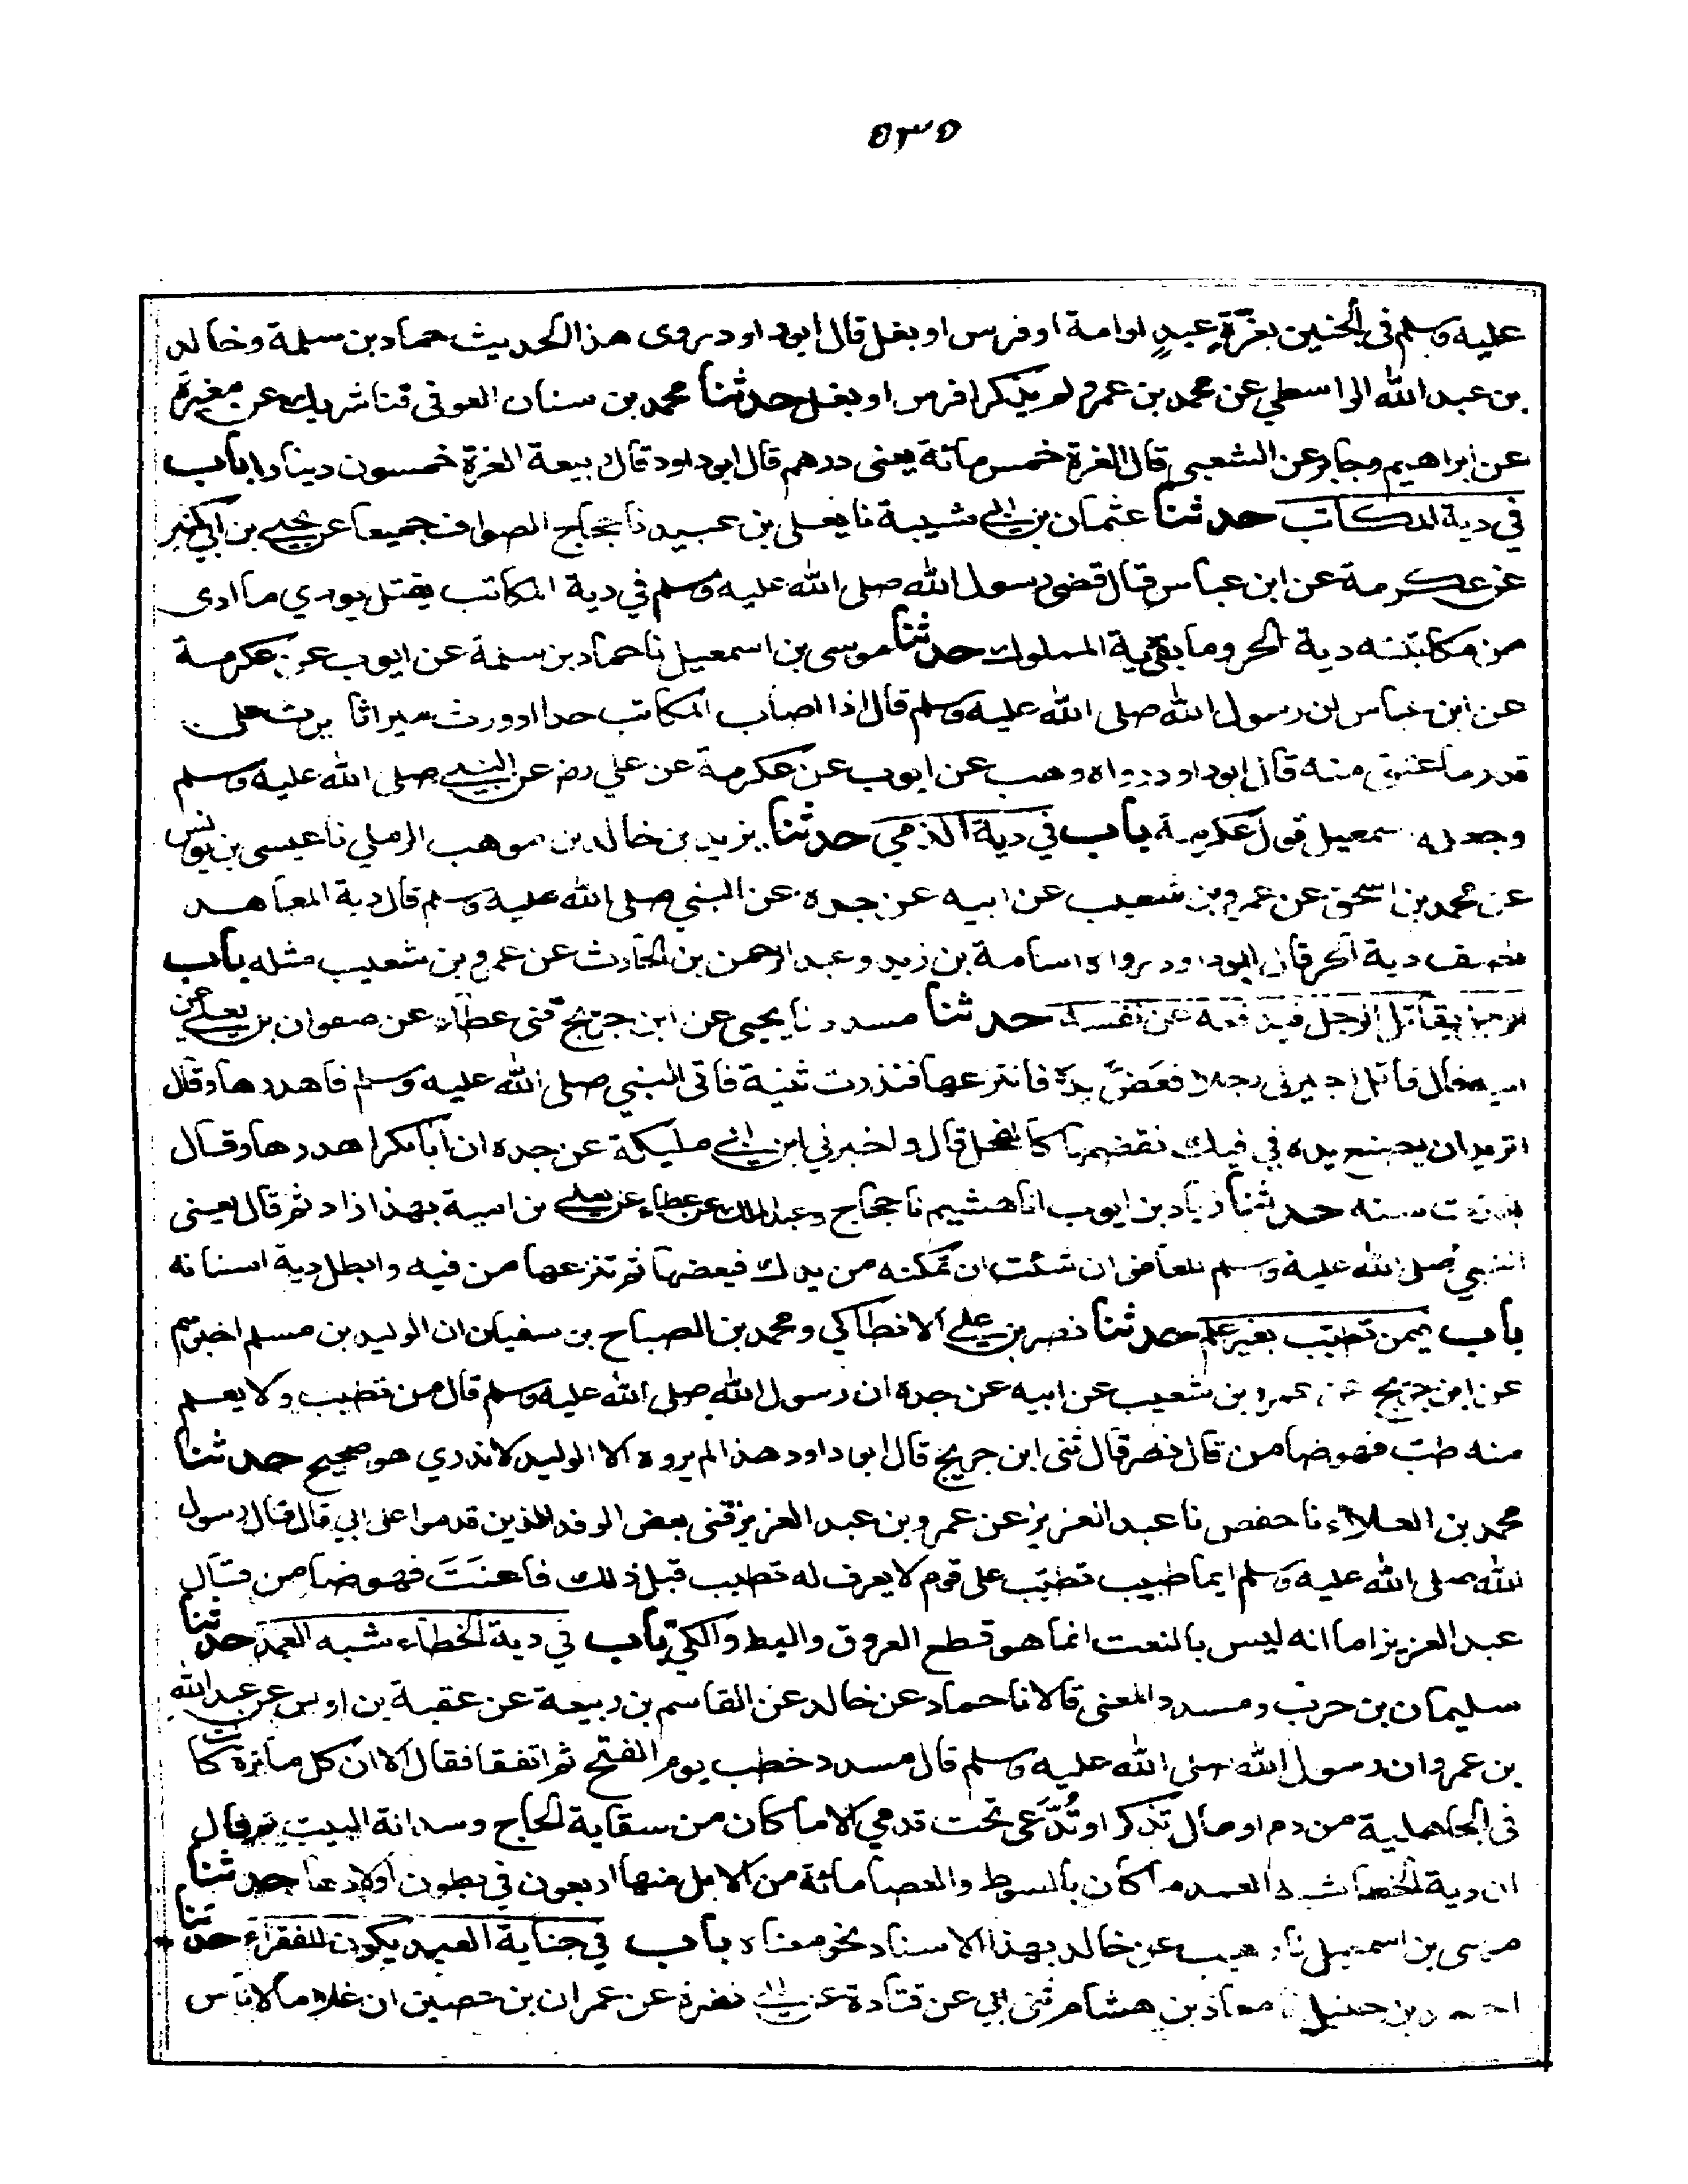 ٥٣٥
عليه وسلم في الجنين بغرّة عبدٍ او امة او فرس او بغل قال ابو داود روى هذا الحديث حماد بن سلمة وخالد
بن عبد الله الواسطي عن محمد بن عمرو لم يذكرا فرس او بغل حدثنا محمد بن سنان العوقي قثنا شريك عن مغيرة
عن ابراهيم وجابر عن الشعبي قال الغرة خمس مائة يعني درهم قال ابو داود قال ربيعة الغرة خمسون دينارا باب
في دية المكاتب حدثنا عثمان بن ابي شيبة نا يعلى بن عبيد نا حجاج الصواف جميعا عن يحيى بن ابي كثير
عن عكرمة عن ابن عباس قال قضى رسول الله صلى الله عليه وسلم في دية المكاتب يقتل يودي ما ادى
من مكاتبته دية الحر وما بقي دية المملوك حدثنا موسى بن اسمعيل نا حماد بن سلمة عن ايوب عن عكرمة
عن ابن عباس ان رسول الله صلى الله عليه وسلم قال اذا اصاب المكاتب حدا او ورث ميراثا يرث على
قدر ما عتق منه قال ابو داود رواه وهب عن ايوب عن عكرمة عن علي رضـ عن النبي صلى الله عليه وسلم
وجعله اسمعيل قول عكرمة باب في دية الذمي حدثنا يزيد بن خالد بن موهب الرملي نا عيسى بن يونس
عن محمد بن اسحق عن عمرو بن شعيب عن ابيه عن جده عن النبي صلى الله عليه وسلم قال دية المعاهد
نصف دية الحر قال ابو داود رواه اسامة بن زيد وعبد الرحمن بن الحارث عن عمرو بن شعيب مثله باب
الرجل يقاتل الرجل فيدفعه عن نفسه حدثنا مسدد نا يحيى عن ابن جريج قثنى عطاء عن صفوان بن يعلى عن
ابيه قال قاتل اجير لي رجلا فعَضّ يده فانتزعها فندرت ثنية فاتى النبي صلى الله عليه وسلم فاهدرها وقال
اتريد ان يضع يده في فيك تقضمها كالفحل قال واخبرني ابن ابي مليكة عن جده ان ابا بكر اهدرها وقال
بعدت سنه حدثنا زياد بن ايوب انا هشيم نا حجاج وعبد الملك عن عطاء عن يعلى بن امية بهذا زاد ثم قال يعني
النبي صلى الله عليه وسلم للعاض ان شئت ان تمكنه من يدك فيعضها ثم تنزعها من فيه وابطل دية اسنانه
باب فيمن تطبّب بغير علم حدثنا نصر بن علي الانطاكي ومحمد بن الصباح بن سفيان ان الوليد بن مسلم اخبرهم
عن ابن جريج عن عمرو بن شعيب عن ابيه عن جده ان رسول الله صلى الله عليه وسلم قال من تطبب ولا يعلم
منه طبّ فهو ضامن قال نصر قال ثنى ابن جريج قال ابو داود هذا لم يروه الا الوليد لا ندري هو صحيح حدثنا
محمد بن العلاء نا حفص نا عبد العزيز عن عمرو بن عبد العزيز قثنى بعض الوفد الذين قدموا على ابي قال قال رسول
الله صلى الله عليه وسلم ايما طبيب تطبّب على قوم لا يعرف له تطبب قبل ذلك فاعنَتَ فهو ضامن قال
عبد العزيز اما انه ليس بالنعت انما هو قطع العروق والبط والكيّ باب في دية الخطاء شبه العمد حدثنا
سليمان بن حرب ومسدد المعنى قالا نا حماد عن خالد عن القاسم بن ربيعة عن عقبة بن اوس عن عبد الله
بن عمرو ان رسول الله صلى الله عليه وسلم قال مسدد خطب يوم الفتح ثم اتفقا فقال الا ان كل مأثرة كانت
في الجاهلية من دم او مال تذكر او تُدّعَى تحت قدمي الا ما كان من سقاية الحاج وسدانة البيت ثم قال
ان دية الخطا شبه العمد ما كان بالسوط والعصا مائة من الابل منها اربعون في بطون اولادها حدثنا
موسى بن اسمعيل نا وهيب عن خالد بهذا الاسناد نحو معناه باب في جناية العبد يكون للفقراء حدثنا
احمد بن حنبل نا معاذ بن هشام ثنى ابي عن قتادة عن ابي نضرة عن عمران بن حصين ان غلاما لاناس